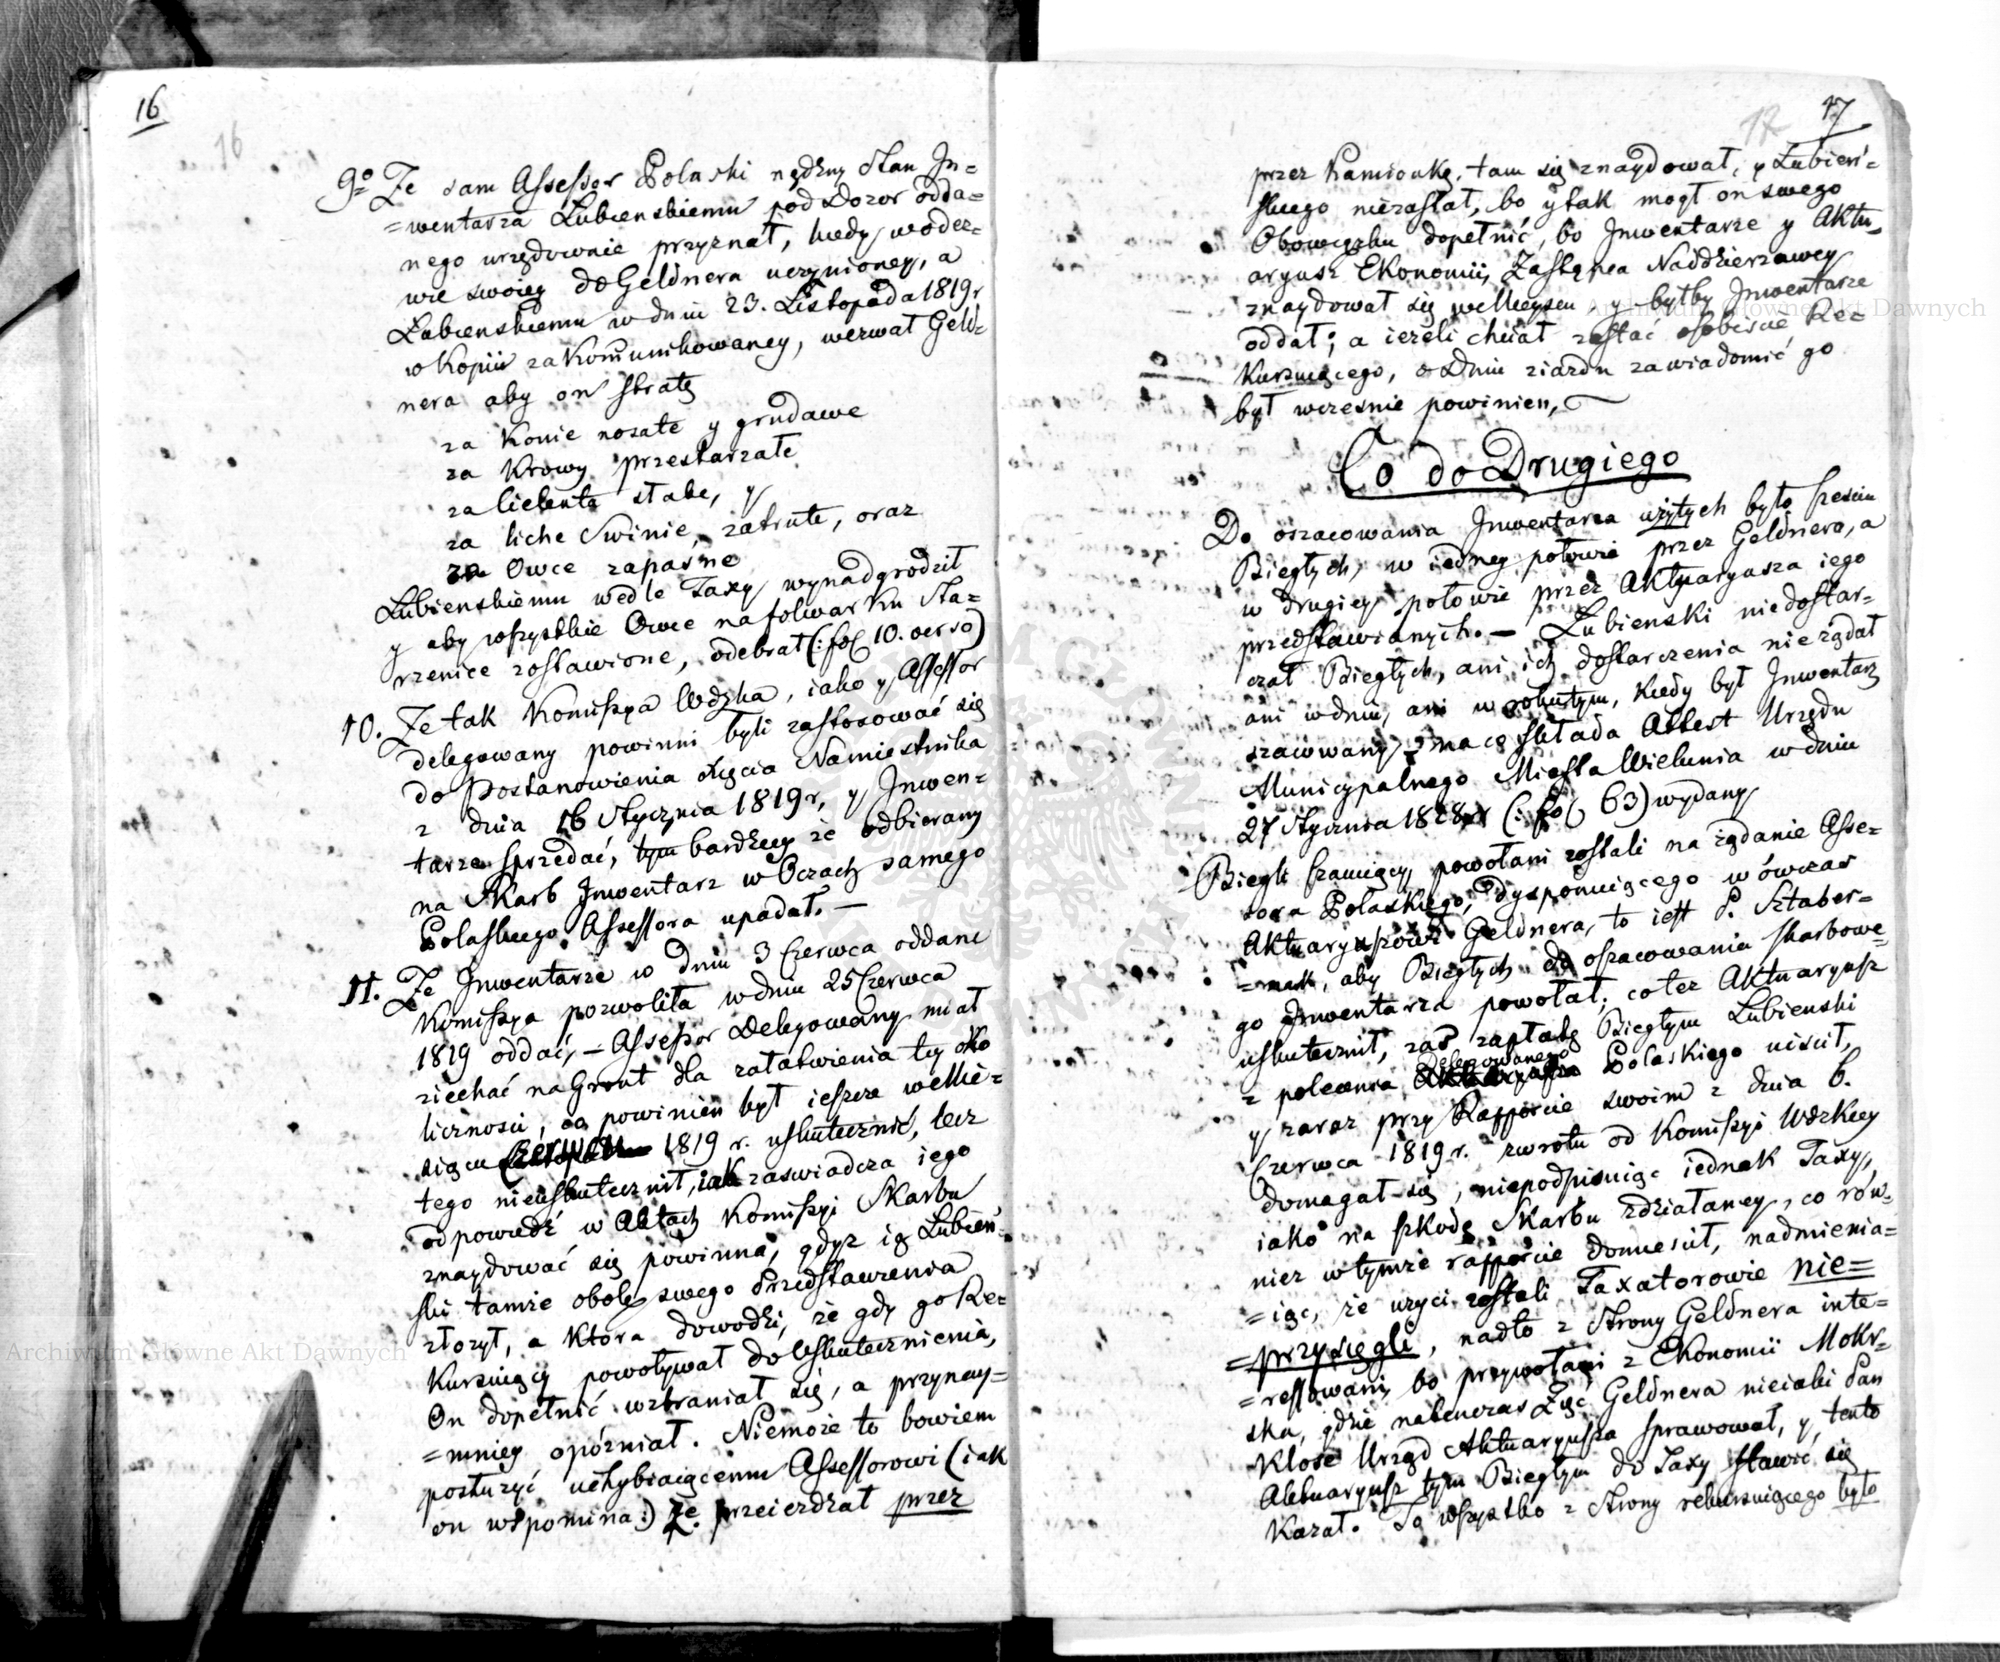 16
16
9o Że sam Assessor Polaski nędzny Stan In=
=wentarza Lubienskiemu pod Dozor odda=
nego urzędownie przyznał, kiedy w odez=
wie swoiey do Geldnera uczynioney, a
Łubienskiemu w dniu 23. Listopada 1819 r
w Kopii zakomunikowaney, wezwał Geld=
nera aby on stratę
za Konie nosate y grudawe
za Krowy przestarzałe
za Cielenta słabe, y
za liche Swinie, zatrute, oraz
za Owce zapasne
Lubienskiemu wedle Taxy wynadgrodził
y aby wszystkie Owce na folwarku Sta=
rzenice zostawione, odebrał (: fol 10. verso)
10. Że tak Komissya Wdzka, iako y Assessor
delegowany powinni byli zastosować się
do Postanowienia Xięcia Namiestnika
z dnia 16 Stycznia 1819 r, y Inwen=
tarze sprzedać, tym bardziey że odbierany
na Skarb Inwentarz w Oczach samego
Polaskiego Assessora upadał. —
11. Że Inwentarze w dniu 3 Czerwca oddane
Komissya pozwoliła w dniu 25 Czerwca
1819 oddać, — Assessor Delegowany miał
ziechać na Grunt dla załatwienia tey oko
liczności, co powinien był ieszcze w Mie=
siącu Czerwcu 1819 r. uskutecznić, lecz
tego nieuskutecznił, iak zaswiadcza iego
odpowiedź w Aktach Komissyi Skarbu
znaydować się powinna, gdyz ią Lubień=
ski tamże obok swego Przedstawienia
złożył, a która dowodzi, że gdy go Re=
Kursuiący powoływał do Uskutecznienia,
On dopełnić wzbraniał się, a przynay=
=mniey opóźniał. Niemoże to bowiem
posłużyć uchybiaiącemu Assessorowi (iak
on wspomina:) Że przeierdzał przez
17
17
przez Kamionkę, tam się znaydował, y Lubień=
skiego niezastał, bo y tak mogł on swego
Obowiązku dopełnić, bo Inwentarze y Aktu=
aryusz Ekonomii, Zastępca Naddzierzawcy
znaydował się w Mieyscu y byłby Inwentarze
oddał; a ieżeli chciał zastać osobiscie Re=
Kursuiącego, o Dniu ziazdu zawiadomić go
był wczesnie powinien,
Co do Drugiego
Do oszacowania Inwentarza użytych było sześciu
Biegłych, w iedney połowie przez Geldnera, a
w drugiey połowie przez Aktuaryusza iego
przedstawianych. — Lubienski niedostar=
czał Biegłych, ani ich dostarczenia nie żądał
ani w dniu, ani w, kiedy był Inwentarz
szacowany, na co składa Attest Urzędu
Municypalnego Miasta Wielunia w dniu
27 Stycznia 1828 r (: fol 63) wydany
Biegli szacuiący powołani zostali na żądanie Asse=
sora Polaskiego, dysponuiącego wówczas
Aktuaryuszowi Geldnera, to iest P. Sztaber=
=mak, aby Biegłych do oszacowania skarbowe=
go Inwentarza powołał, co też Aktuaryusz
uskutecznił, zaś zapłatę Biegłym Lubienski
z polecenia Delegowanego Polaskiego uiscił,
y zaraz przy Rapporcie swoim z dnia 6.
Czerwca 1819 r. zwrotu od Komissyi Wdzkiey
domagał się, niepodpisuiąc iednak Taxy,
iako na szkodę Skarbu zdziałaney, co rów=
niez w tymże rapporcie doniesił, nadmienia=
=iąc, że uzyci zostali Taxatorowie nie=
=przysięgli, nadto z Strony Geldnera inte=
=ressowani, bo przywołani z Ekonomii Mokr=
ska, gdzie natenczas Zięć Geldnera nieiaki Pan
Klose Urząd Aktuaryusza sprawował, y tento
Aktuaryusz tym Biegłym do Taxy stawić się
Kazał. To wszystko z Strony rekursuiącego było
Archiwum Główne Akt Dawnych
Archiwum Główne Akt Dawnych